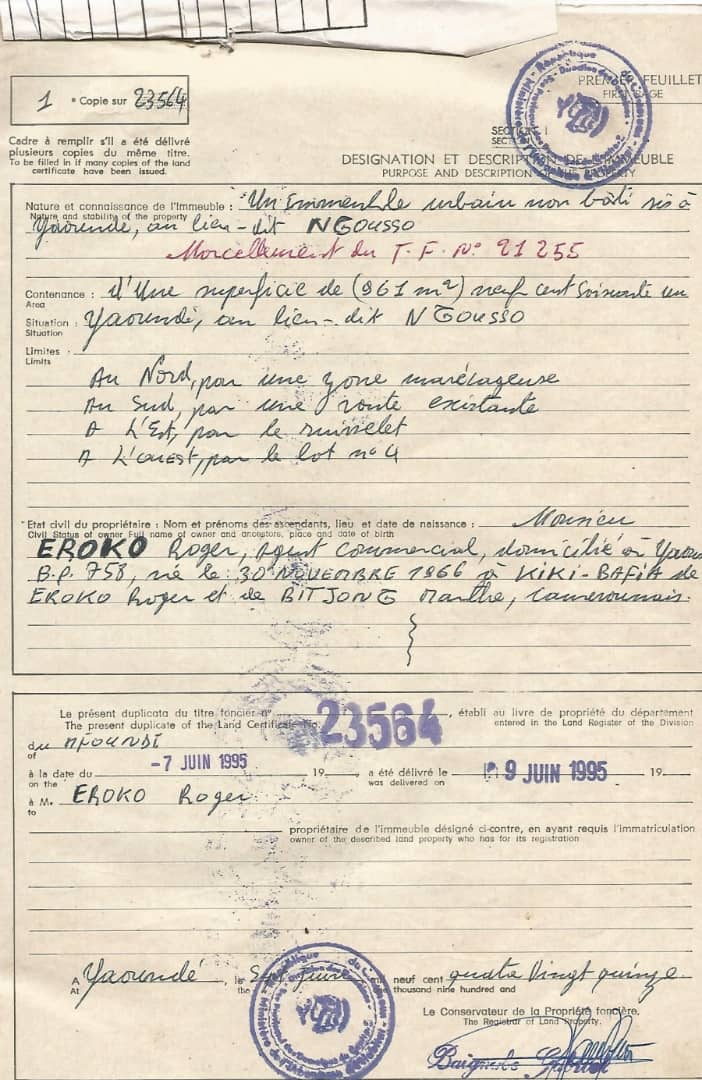 PREMIER FEUILLET
FIRST PAGE
1 * Copie sur 23564
Cadre à remplir s'il a été délivré
plusieurs copies du même titre.
To be filled in if many copies of the land
certificate have been issued.
DESIGNATION ET DESCRIPTION DE L'IMMEUBLE
PURPOSE AND DESCRIPTION OF THE PROPERTY
Nature et connaissance de l'Immeuble : Un Immeuble urbain non bâti sis à
Nature and stability of the property
Yaoundé, au lieu-dit NGOUSSO
Morcellement du T.F. N° 21255
Contenance : d'Une superficie de (961 m²) neuf cent soixante un
Area
Situation : Yaoundé, au lieu-dit NGOUSSO
Situation
Limites :
Limits
Au Nord, par une zone marécageuse
Au Sud, par une route existante
A L'Est, par le ruisselet
A L'ouest, par le lot n° 4
* Etat civil du propriétaire : Nom et prénoms des ascendants, lieu et date de naissance : Monsieur
Civil Status of owner Full name of owner and ancestors, place and date of birth
EROKO Roger, agent commercial, domicilié à Yaou
B.P. 758, né le 30 NOVEMBRE 1966 à KIKI-BAFIA de
EROKO Roger et de BITJONG Marthe, camerounais.
Le présent duplicata du titre foncier n° 23564, établi au livre de propriété du département
The present duplicate of the Land Certificate No. entered in the Land Register of the Division
du MFOUNDI
of
à la date du -7 JUIN 1995 19 a été délivré le 9 JUIN 1995 19
on the was delivered on
à M. EROKO Roger
to
propriétaire de l'immeuble désigné ci-contre, en ayant requis l'immatriculation
owner of the described land property who has for its registration
A Yaoundé, le Sept Juin mil neuf cent quatre Vingt quinze
At the thousand nine hundred and
Le Conservateur de la Propriété foncière,
The Registrar of Land Property.